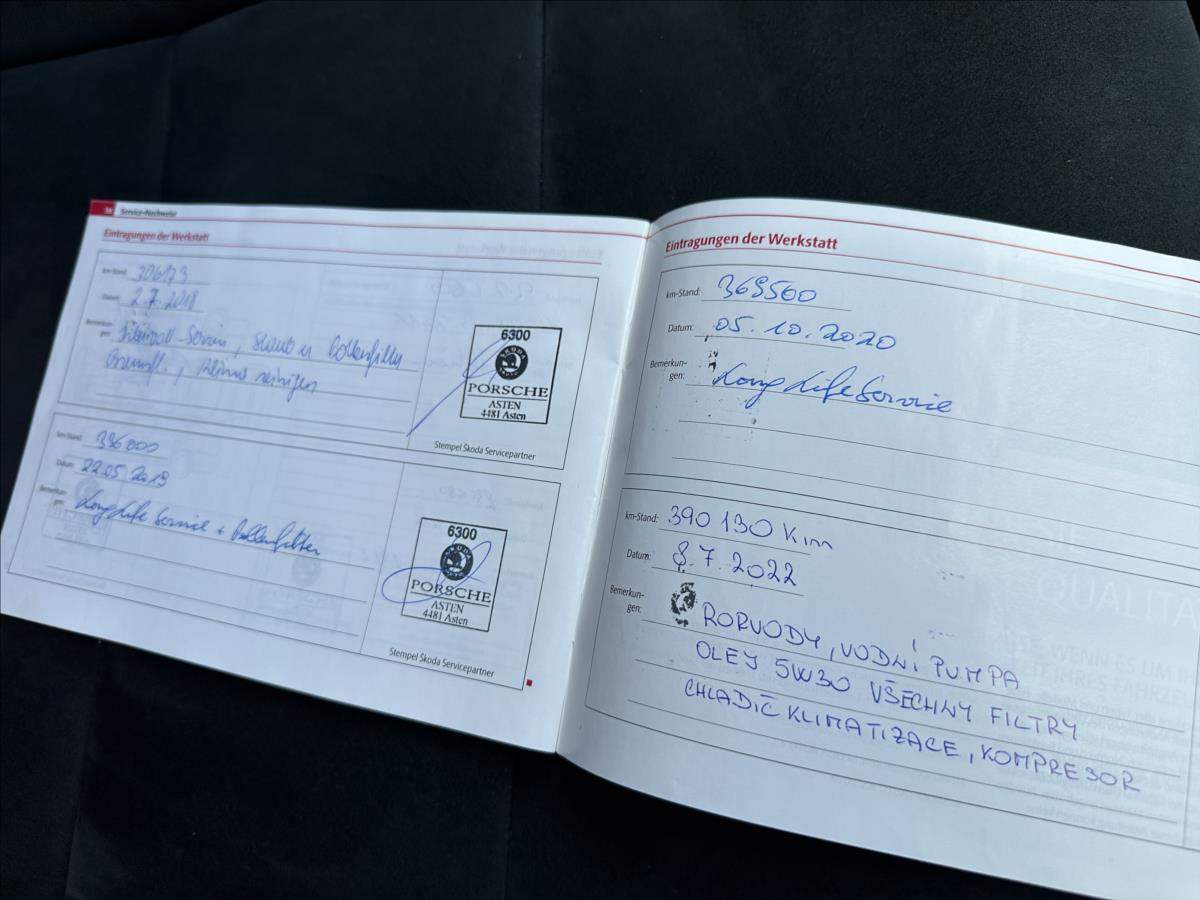 Service-Nachweise
Eintragungen der Werkstatt
km-Stand: 306173
Datum: 2.7.2018
Bemerkun-
gen: Service, Staub u Pollenfilter
reinigen
6300
SKODA
PORSCHE
ASTEN
4481 Asten
Stempel Škoda Servicepartner
km-Stand: 336000
Datum: 22.05.2019
Bemerkun-
gen: LongLife Service + Pollenfilter
6300
SKODA
PORSCHE
ASTEN
4481 Asten
Stempel Škoda Servicepartner
Eintragungen der Werkstatt
km-Stand: 369560
Datum: 05.10.2020
Bemerkun-
gen: Long Life Service
km-Stand: 390130 Km
Datum: 8.7.2022
Bemerkun-
gen: RORVODY, VODNÍ PUMPA
OLEY 5W30 VŠECHNY FILTRY
CHLADIČ KLIMATIZACE, KOMPRESOR